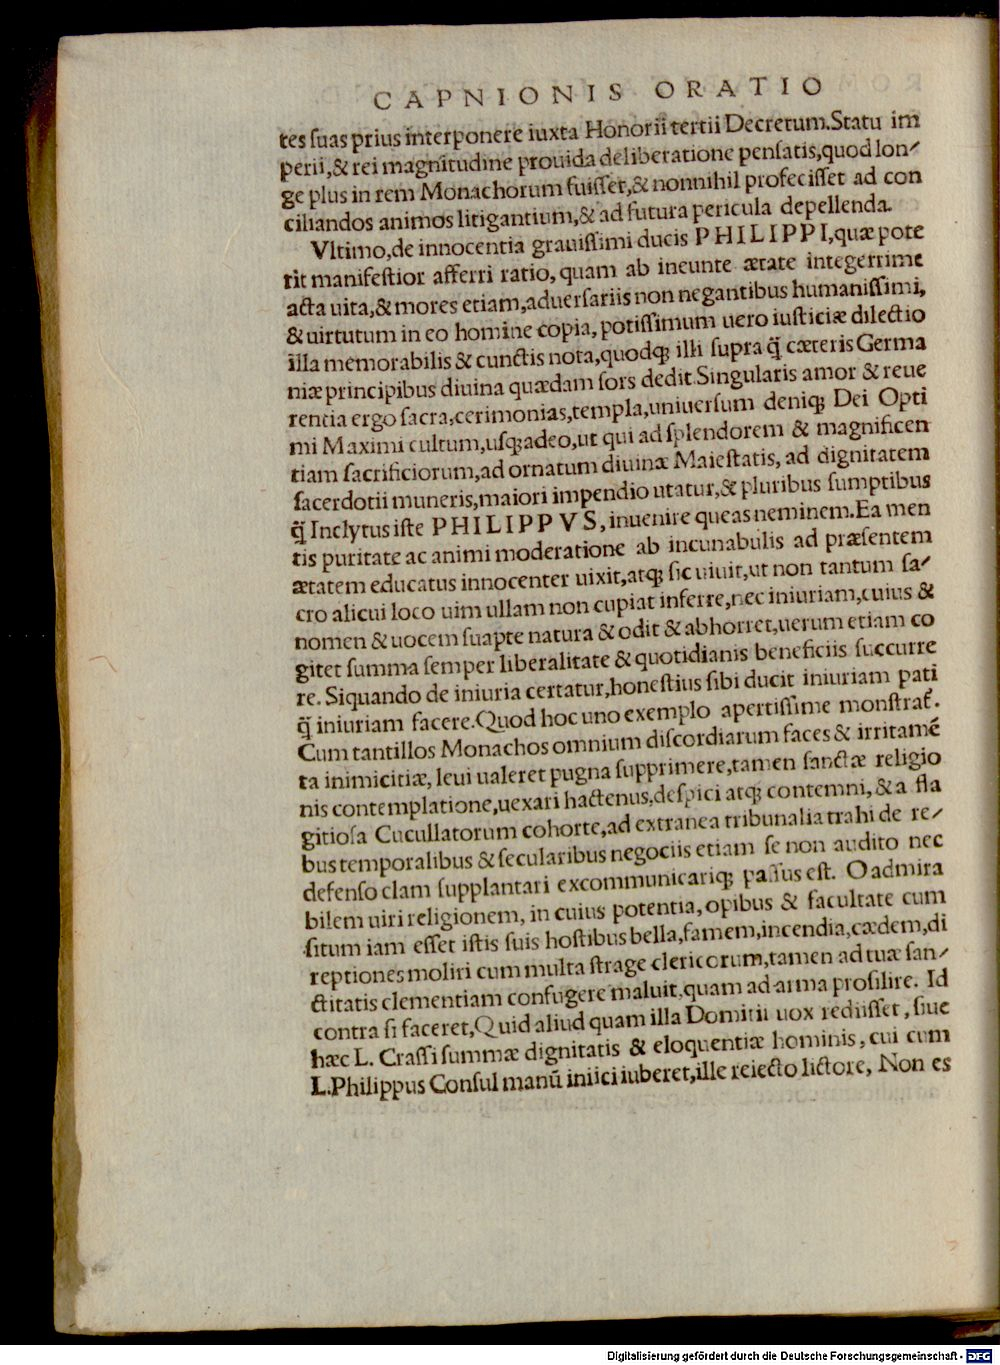 CAPNIONIS ORATIO
tes suas prius interponere iuxta Honorii tertii Decretum.Statu im
perii,& rei magnitudine prouida deliberatione pensatis,quod lon⸗
ge plus in rem Monachorum fuisset,& nonnihil profecisset ad con
ciliandos animos litigantium,& ad futura pericula depellenda.
Vltimo,de innocentia grauissimi ducis PHILIPPI,quæ pote
rit manifestior afferri ratio, quam ab ineunte ætate integerrime
acta uita,& mores etiam,aduersariis non negantibus humanissimi,
& uirtutum in eo homine copia, potissimum uero iusticiæ dilectio
illa memorabilis & cunctis nota,quodq; illi supra q̃ cæteris Germa
niæ principibus diuina quædam sors dedit.Singularis amor & reue
rentia ergo sacra,cerimonias,templa,uniuersum deniq; Dei Opti
mi Maximi cultum,usq;adeo,ut qui ad splendorem & magnificen
tiam sacrificiorum,ad ornatum diuinæ Maiestatis, ad dignitatem
sacerdotii muneris,maiori impendio utatur,& pluribus sumptibus
q̃ Inclytus iste PHILIPPVS, inuenire queas neminem.Ea men
tis puritate ac animi moderatione ab incunabulis ad præsentem
ætatem educatus innocenter uixit,atq; sic uiuit,ut non tantum sa⸗
cro alicui loco uim ullam non cupiat inferre,nec iniuriam,cuius &
nomen & uocem suapte natura & odit & abhorret,uerum etiam co
gitet summa semper liberalitate & quotidianis beneficiis succurre
re. Siquando de iniuria certatur,honestius sibi ducit iniuriam pati
q̃ iniuriam facere.Quod hoc uno exemplo apertissime monstrat᷑.
Cum tantillos Monachos omnium discordiarum faces & irritamẽ
ta inimicitiæ, leui ualeret pugna supprimere,tamen sanctæ religio
nis contemplatione,uexari hactenus,despici atq; contemni, & a fla
gitiosa Cucullatorum cohorte,ad extranea tribunalia trahi de re⸗
bus temporalibus & secularibus negociis etiam se non audito nec
defenso clam supplantari excommunicariq; passus est. O admira
bilem uiri religionem, in cuius potentia, opibus & facultate cum
situm iam esset istis suis hostibus bella,famem,incendia,cædem,di
reptiones moliri cum multa strage clericorum,tamen ad tuæ san⸗
ctitatis clementiam confugere maluit,quam ad arma prosilire. Id
contra si faceret,Quid aliud quam illa Domitii uox rediisset, siue
hæc L. Crassi summæ dignitatis & eloquentiæ hominis, cui cum
L.Philippus Consul manũ iniici iuberet,ille reiecto lictore, Non es
Digitalisierung gefördert durch die Deutsche Forschungsgemeinschaft - DFG